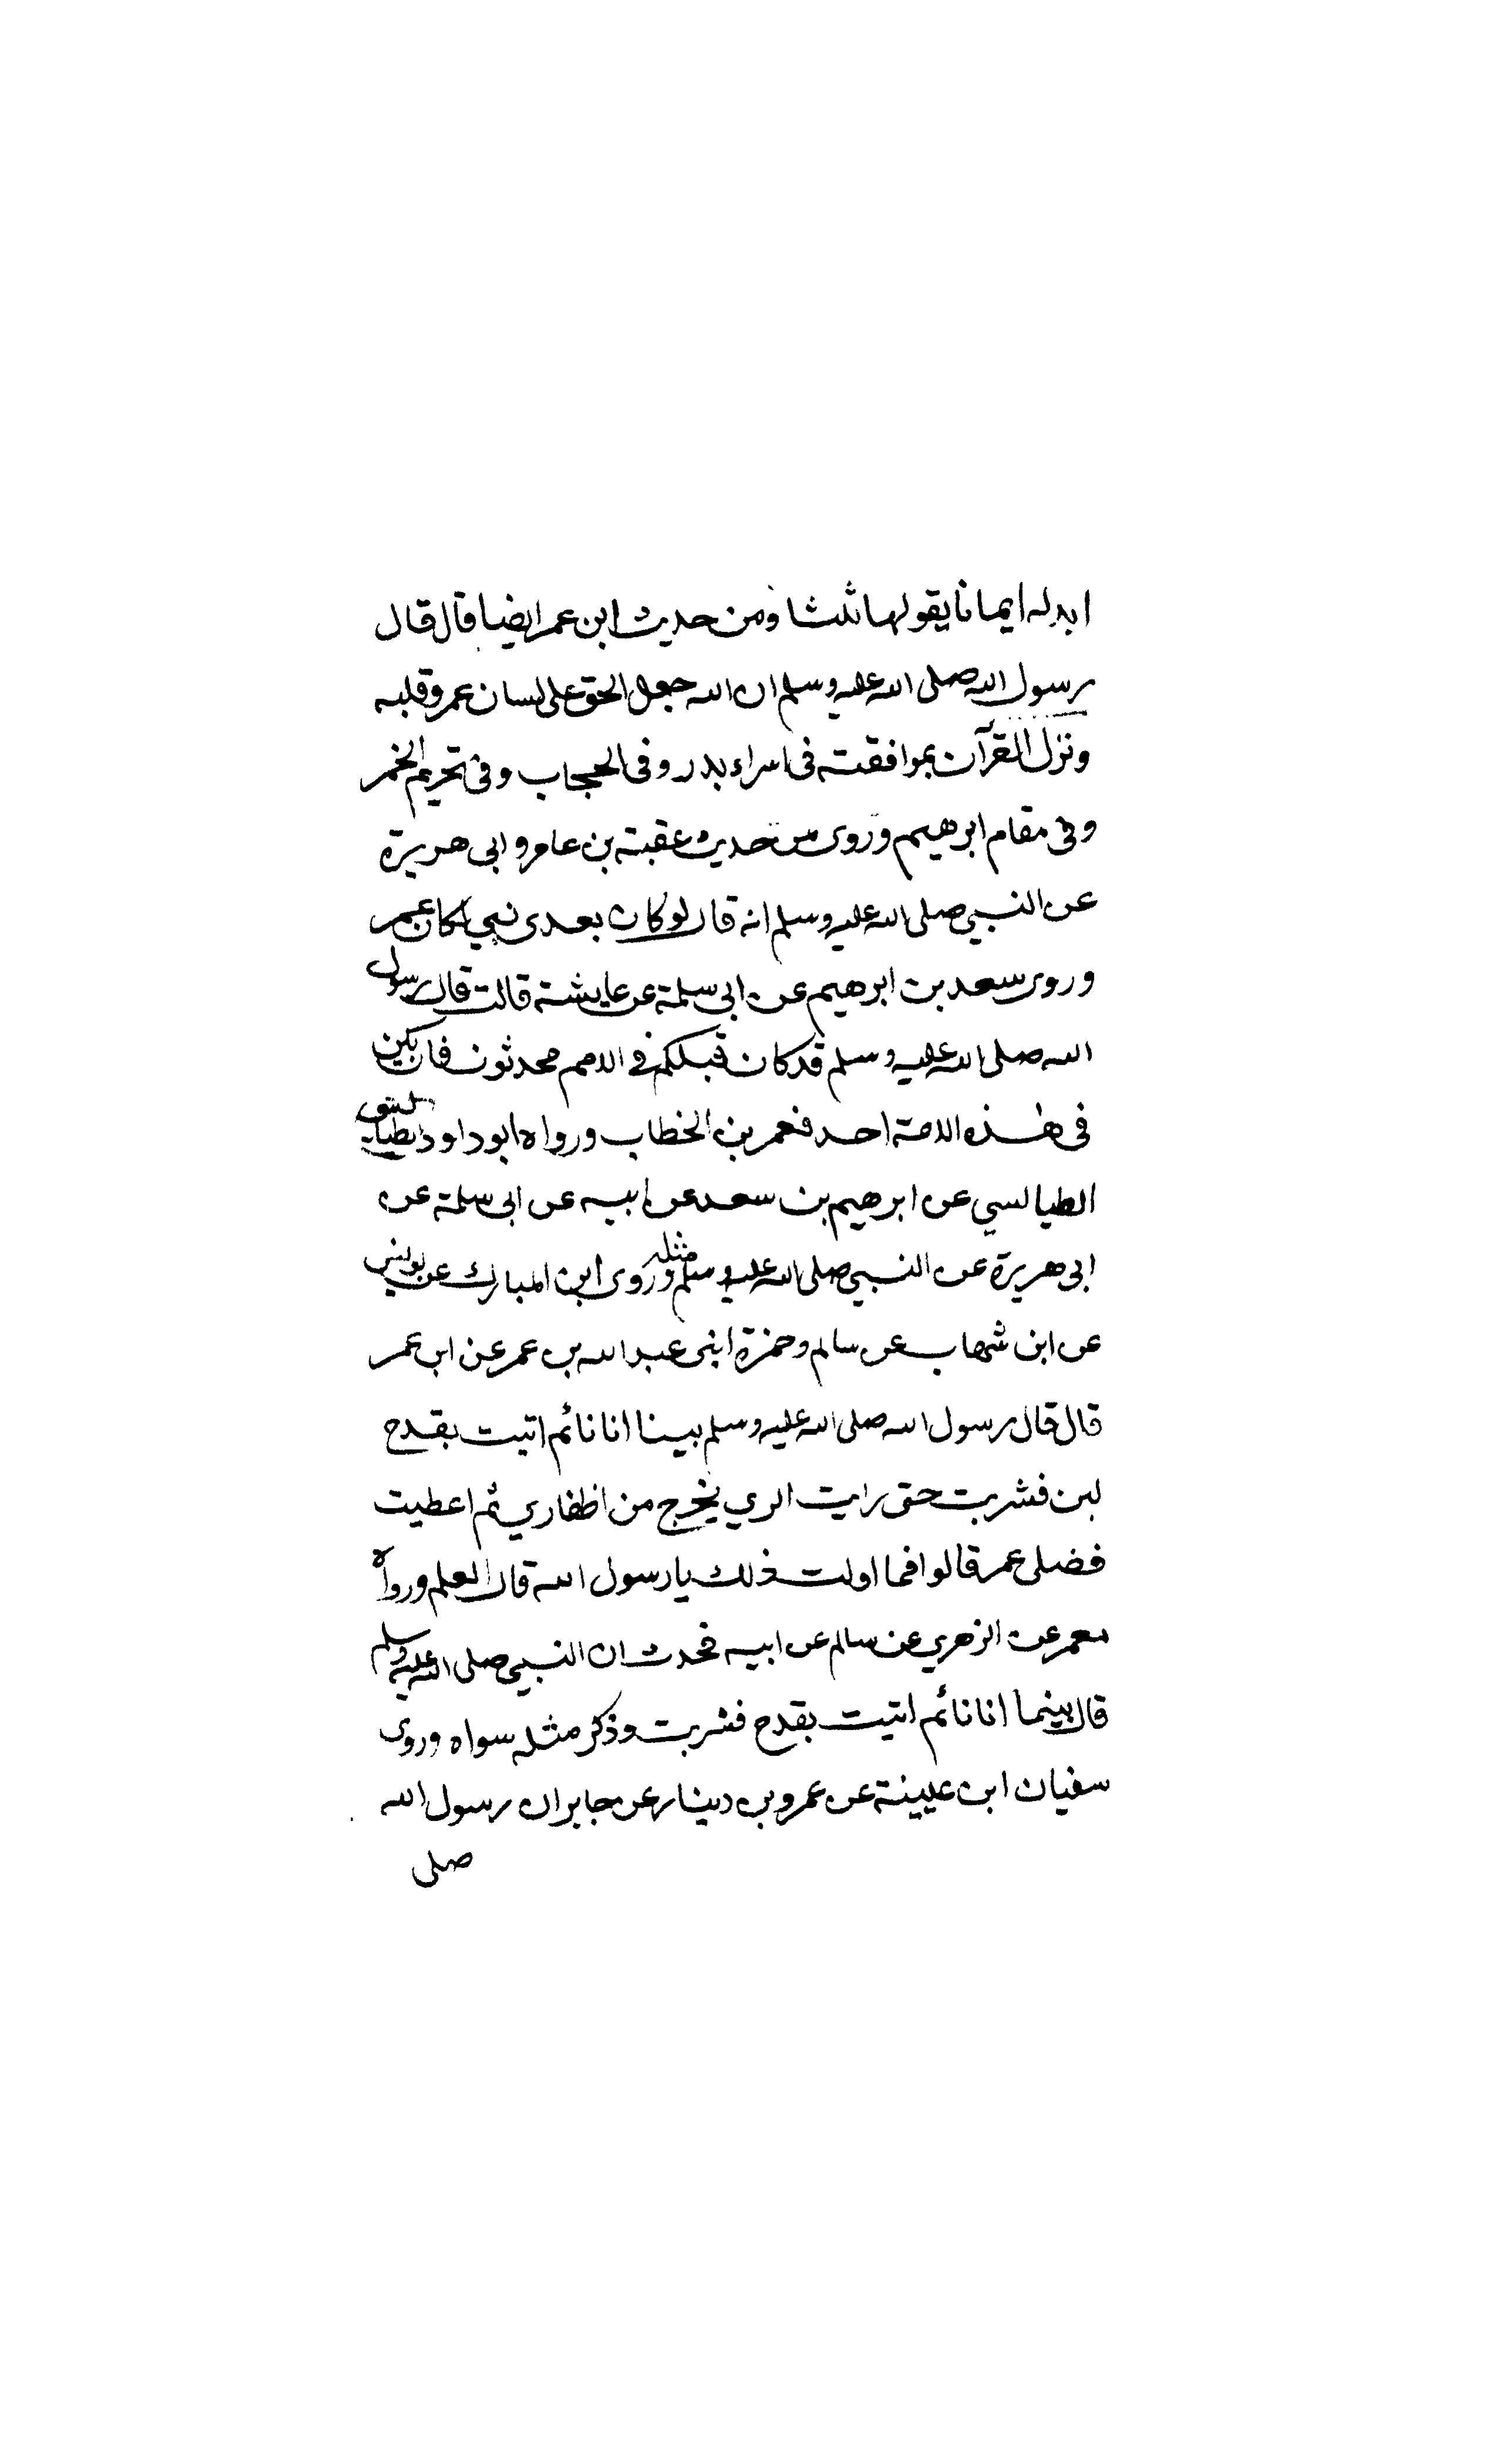 ابدله ايمانا يقولها ثلثا ومن حديث ابن عمر ايضا قال قال
رسول الله صلى الله عليه وسلم ان الله جعل الحق على لسان عمر وقلبه
ونزل القرآن بموافقته فى اسراء بدر وفى الحجاب وفى تحريم الخمر
وفى مقام ابرهيم وروى من حديث عقبة بن عامر وابى هريرة
عن النبى صلى الله عليه وسلم انه قال لو كان بعدى نبي لكان عمر
وروى سعد بن ابرهيم عن ابى سلمة عن عايشة قالت قال رسول
الله صلى الله عليه وسلم قد كان قبلكم فى الامم محدثون فان يكن
فى هذه الامة احد فعمر بن الخطاب ورواه ابو داود
الطيالسي عن ابرهيم بن سعد عن ابيه عن ابى سلمة عن
ابى هريرة عن النبي صلى الله عليه وسلم مثله وروى ابن المبارك عن يونس
عن ابن شهاب عن سالم وحمزة ابنى عبد الله بن عمر عن ابن عمر
قال قال رسول الله صلى الله عليه وسلم بينا انا نائم اتيت بقدح
لبن فشربت حتى رايت الري يخرج من اظفاري ثم اعطيت
فضلى عمر قالوا فما اولت ذلك يا رسول الله قال العلم ورواه
معمر عن الزهري عن سالم عن ابيه فحدث ان النبى صلى الله عليه وسلم
قال بينما انا نائم اتيت بقدح فشربت وذكر مثله سواه وروى
سفيان ابن عيينة عن عمرو بن دينار عن جابر ان رسول الله
صلى